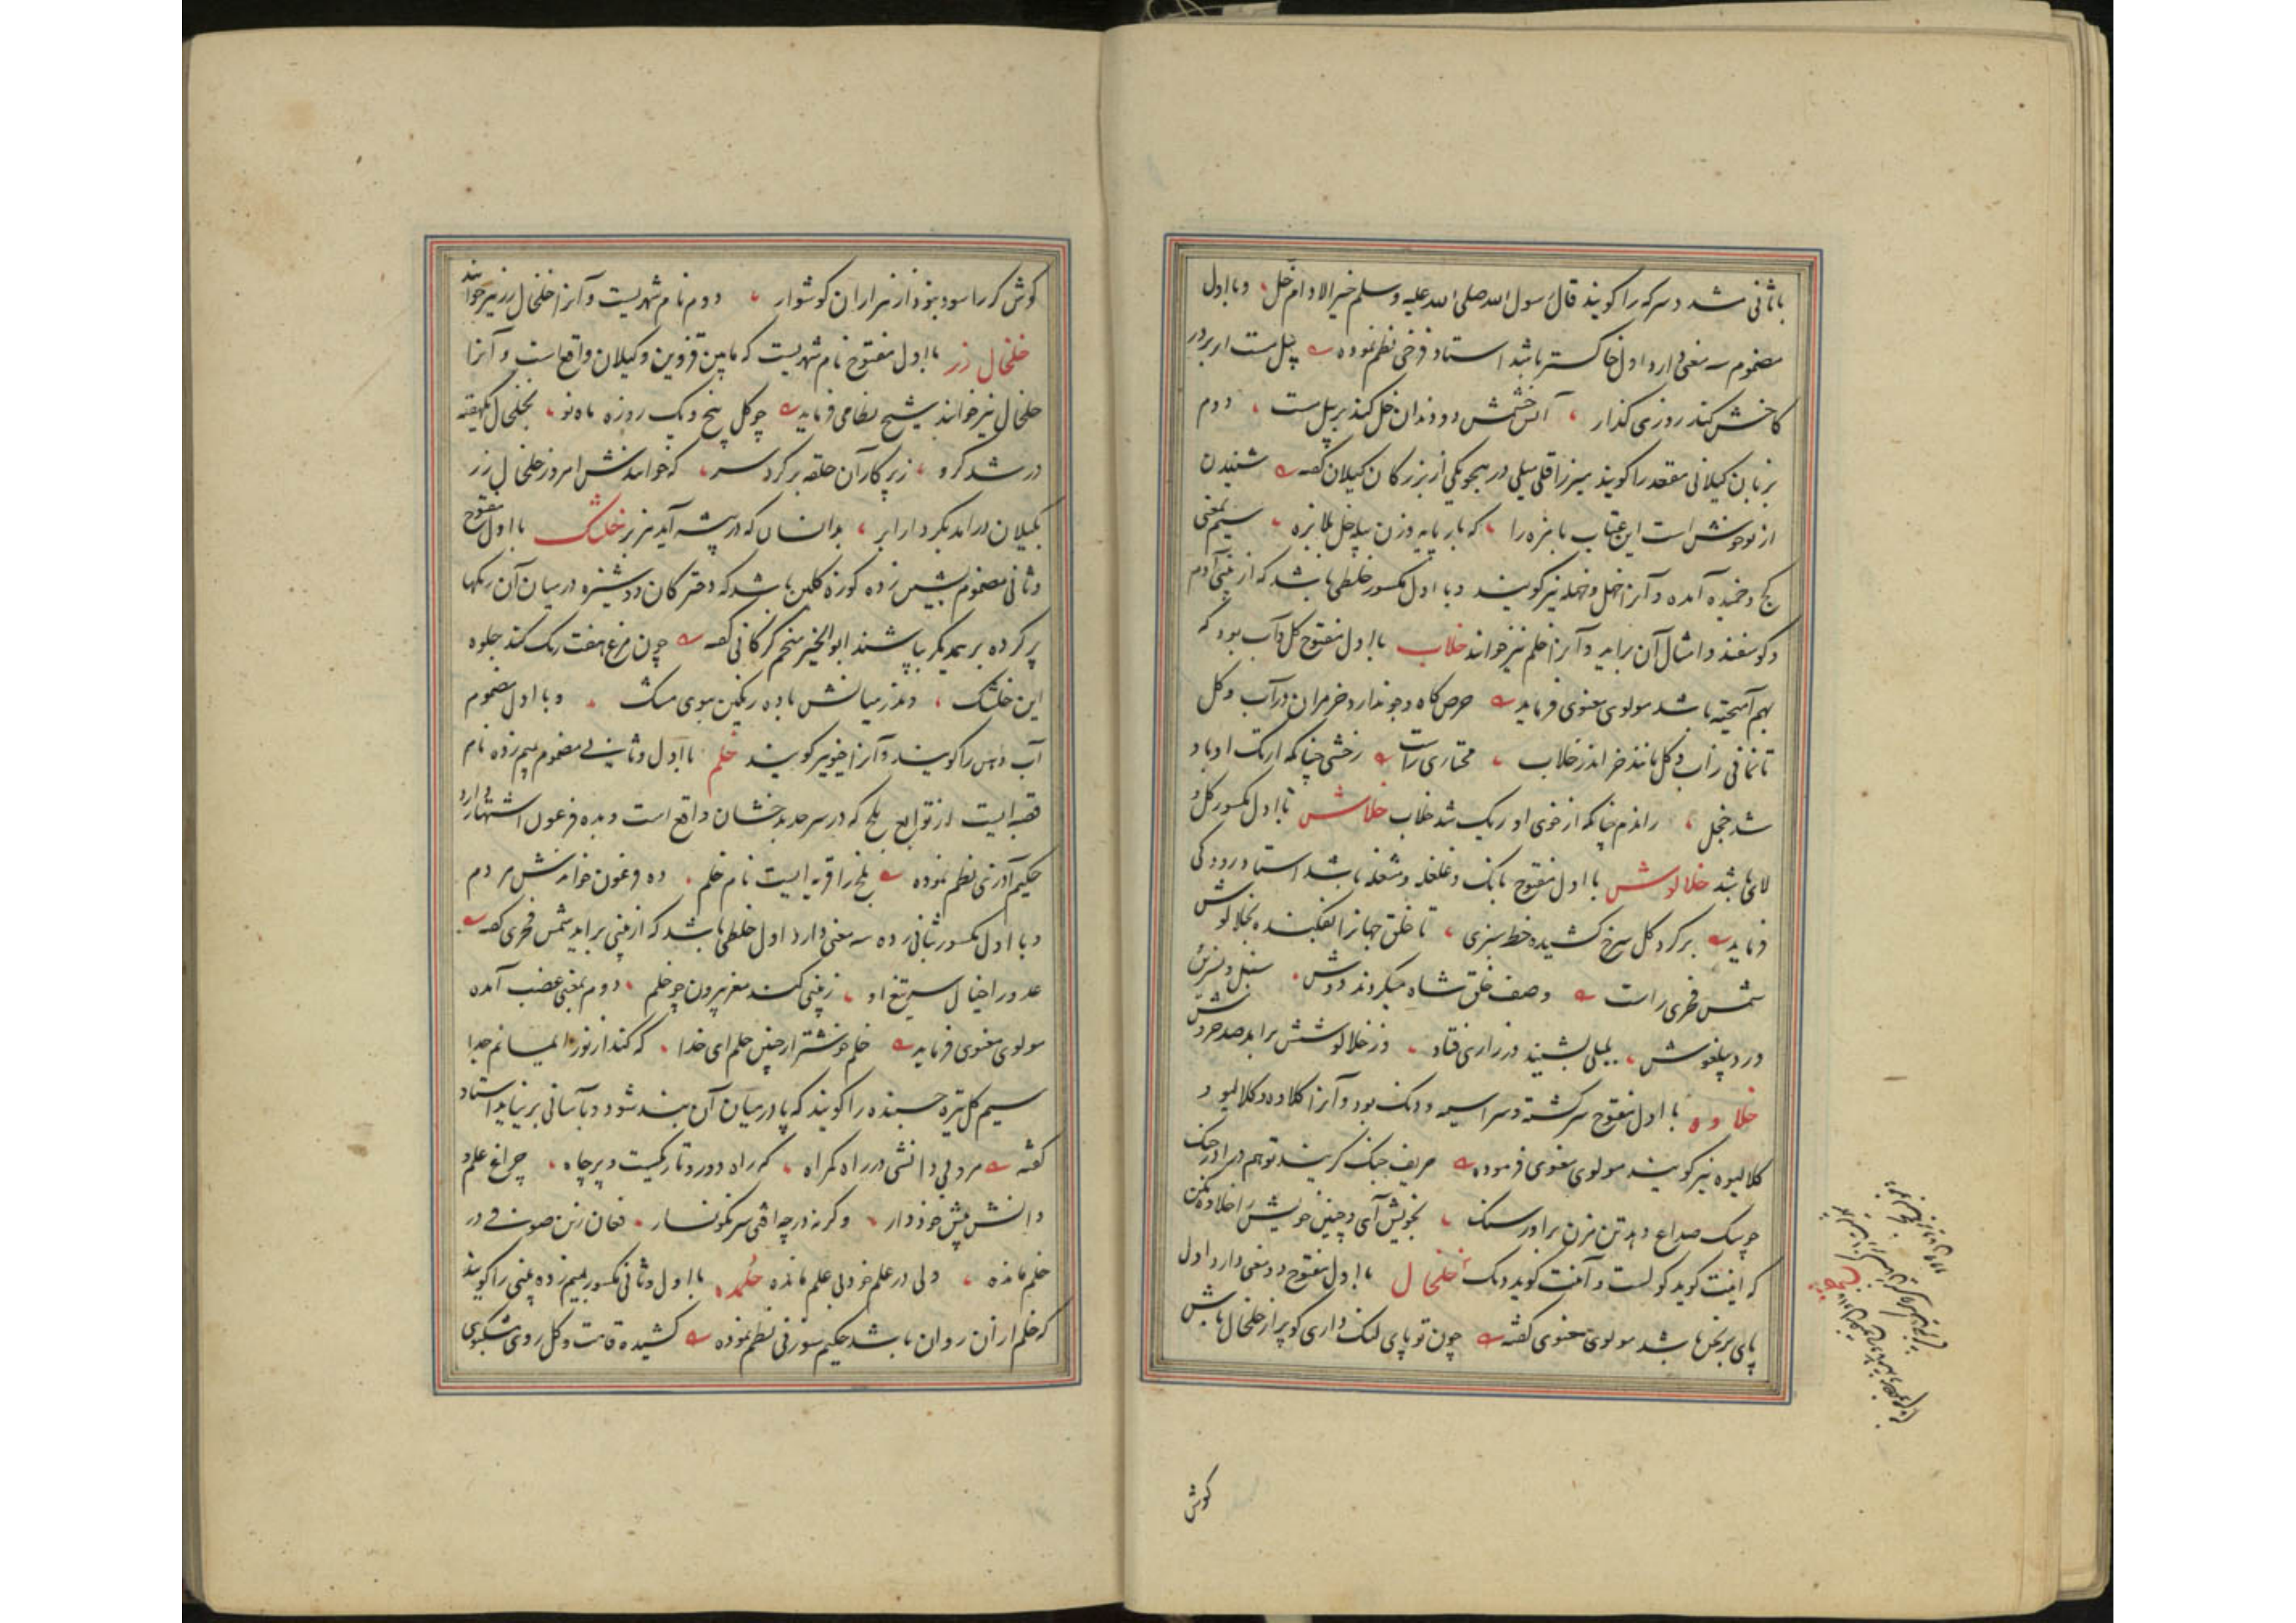 باثانی مشدد سرکه را کویند قال رسول الله صلی الله علیه وسلم خیر الادام خل، وبااول
مضموم سه معنی دارد اول خاکستر باشد استاد فرخی نظم نموده پیل مست ار بر در
کاخش کند روزی کذار، آتش خشمش دو دندان خل کند بر پیل مست، دوم
بزبان کیلانی مقعد را کویند میرزا قلی میلی در هجو یکی از بزرکان کیلان کفته شنیدن
از تو خوش است این عتاب بامزه را، که بار پایه وزن
کج وخمیده آمده وآنرا خهل وخهله نیز کویند وبااول مکسور خلطی باشد که از بینی آدم
وکوسفند وامثال آن براید وآنرا خلم نیز خوانند خلاب بااول مفتوح کل وآب بود که
بهم آمیخته باشد مولوی معنوی فرماید حرص کاه وجو ندارد خر مران در آب وکل
تا نمانی زاب وکل مانند خر اندر خلاب، مختاری راست زخشی چنانکه ارتک او باد
شد خجل، راندم چنانکه از خوی او ریک شد خلاب خلاش بااول مکسور کل و
لای باشد خلالوش بااول مفتوح بانک وغلغله ومشغله باشد استاد رودکی
فرماید بر کرد کل سرخ کشیده خط سبزی، تا خلق جهانرا بفکنده بخلالوش
شمس فخری راست وصف خلق شاه میکردند دوش، سنبل ونسرین
ورد پیلغوش، بلبلی بشنید ودر زاری فتاد، وز خلالوشش برامد صد خروش
خلاوه بااول مفتوح سرکشته وسراسیمه ودنک بود وآنرا کلاوه وکالیو و
کالیوه نیز کویند مولوی معنوی فرموده حریف جنک کزیند تو هم درا در جنک
چو سک صداع دهد تن مزن براور سنک، بخویش آی وچنین خویش را خلاوه مکن
که اینت کوید کولست وآنت کوید دنک، خلخال بااول مفتوح دو معنی دارد اول
پای برنجن باشد مولوی معنوی کفته چون تو پای لنک داری کو پر از خلخال باش
کوش
کوش کر را سود نبود از هزاران کوشوار، دوم نام شهریست وآنرا خلخال زر نیز خوانند
خلخال زر بااول مفتوح نام شهریست که مابین قزوین وکیلان واقع است وآنرا
خلخال نیز خوانند شیخ نظامی فرماید چو کل پنج ویک روزه ماه نو، بخلخال یکهفته
در شد کرو، ز پرکار آن حلقه بر کرد سر، که خوانندش امروز خلخال زر
بکیلان درامد بکردار ابر، بدانسان که در بیشه آید هزبر خلشک بااول مفتوح
وثانی مضموم بشین زده کوزه کلین باشد که دخترکان دوشیزه درمیان آن رنکها
پر کرده بر همدیکر بپاشند ابوالخیر منجم کرکانی کفته چون مرغ هفت رنک کند جلوه
این خلشک، وندر میانش باده رنکین ببوی مشک، وبااول مضموم
آب دهن را کویند وآنرا خیو نیز کویند خلم بااول وثانی مضموم بمیم زده نام
قصبه ایست از توابع بلخ که در سرحد بدخشان واقع است وبده فرعون اشتهار دارد
حکیم آذرنی نظم نموده بلخ را قریه ایست نام خلم، ده فرعون خوانندش مردم
وبااول مکسور بثانی زده سه معنی دارد اول خلطی باشد که از بینی براید شمس فخری کفته
عدو را خیال سر تیغ او، ز بینی کند مغز بیرون چو خلم، دوم بمعنی غضب آمده
مولوی معنوی فرماید خلم خوشتر از چنین حلم ای خدا، که کند از نور ایمانم جدا
سیم کل تیره چسبنده را کویند که پا درمیان آن بند شود وبآسانی بر نیاید استاد
کفته مرو بی دانشی در راه کمراه، که راه دور وتاریکست وپر چاه، چراغ علم و
دانش پیش خود دار، وکرنه در چه افتی سرنکونسار، فغان زین صوفی در
خلم مانده، ولی در علم خود بی علم مانده خلمده بااول وثانی مکسور بمیم زده بینی را کویند
که خلم از آن روان باشد حکیم سوزنی نظم نموده کشیده قامت وکل روی ومشکبوی